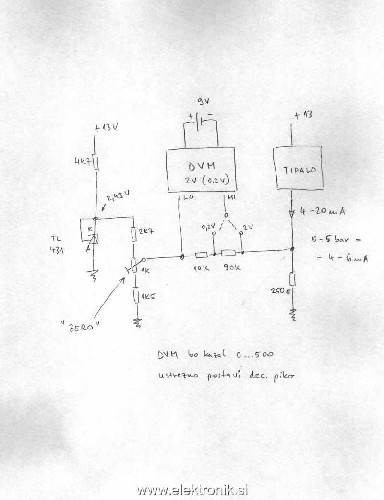 9V
+ -
+13V
+13
4K7
DVM
2V (0,2V)
LO HI
TIPALO
2,43V
4-20mA
TL
431
K
A
2K7
0,2V
2V
0-5 bar =
- 4-6mA
1K
10K
90K
1K5
250
"ZERO"
DVM bo kazal 0...500
ustrezno postavi dec. piko
www.elektronik.si